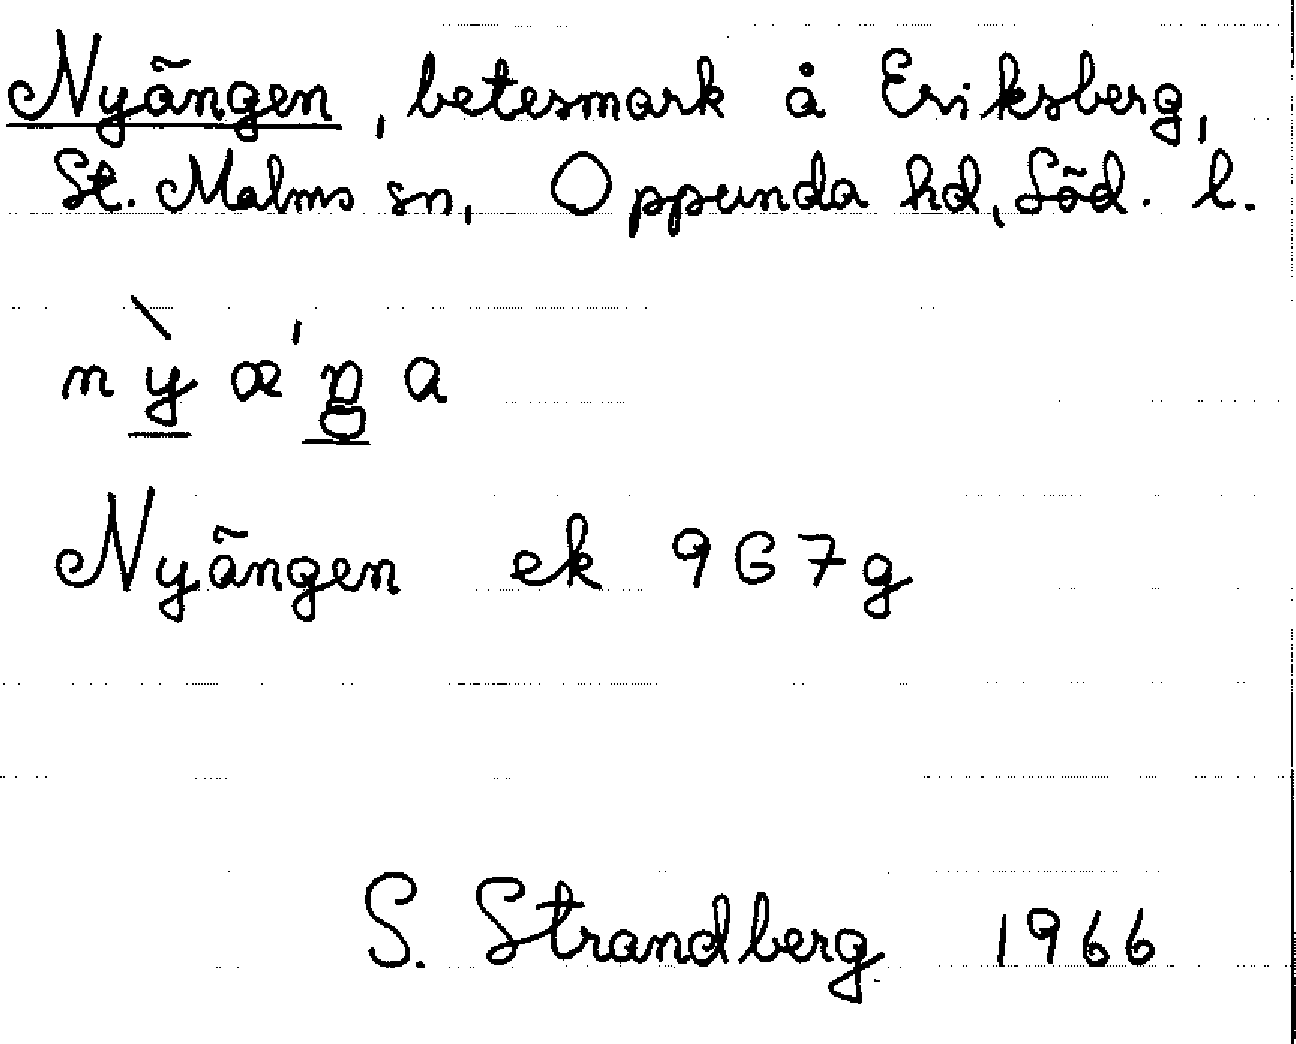 Nyängen, betesmark å Eriksberg,
St. Malms sn, Oppunda hd, Söd. l.
nỳæ'ŋa
Nyängen ek 9G7g
S. Strandberg 1966